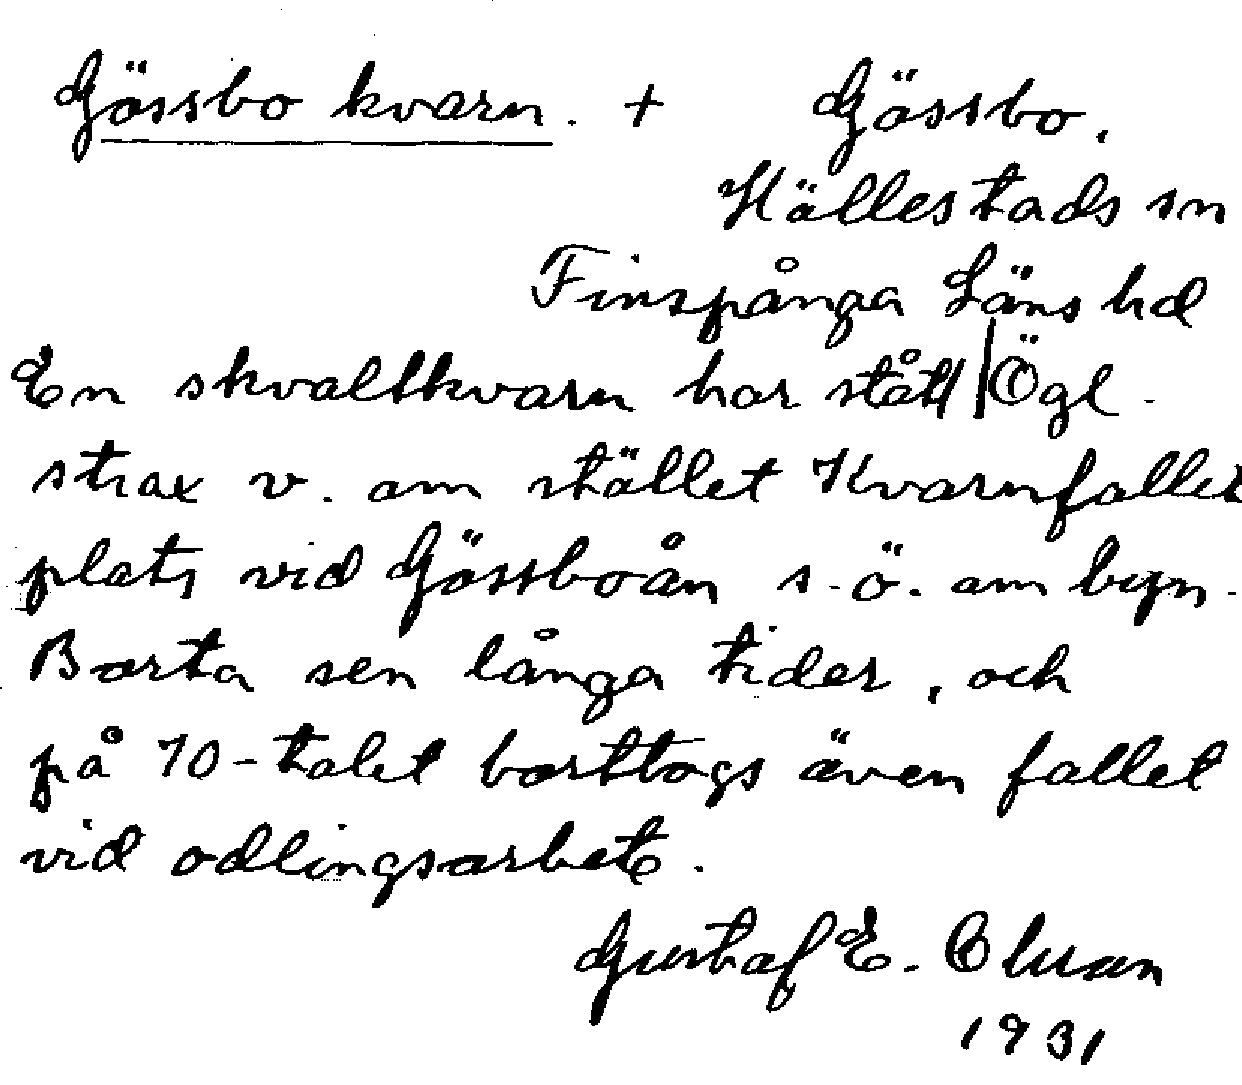 Gössbo kvarn. + Gössbo.
Hällestads sn
Finspånga Läns hd
En skvaltkvarn har stått | Ögl.
strax v. om stället Kvarnfallet
plats vid Gössboån s.ö. om byn.
Borta sen långa tider, och
på 70-talet borttogs även fallet
vid odlingsarbete.
Gustaf E. Olsson
1931